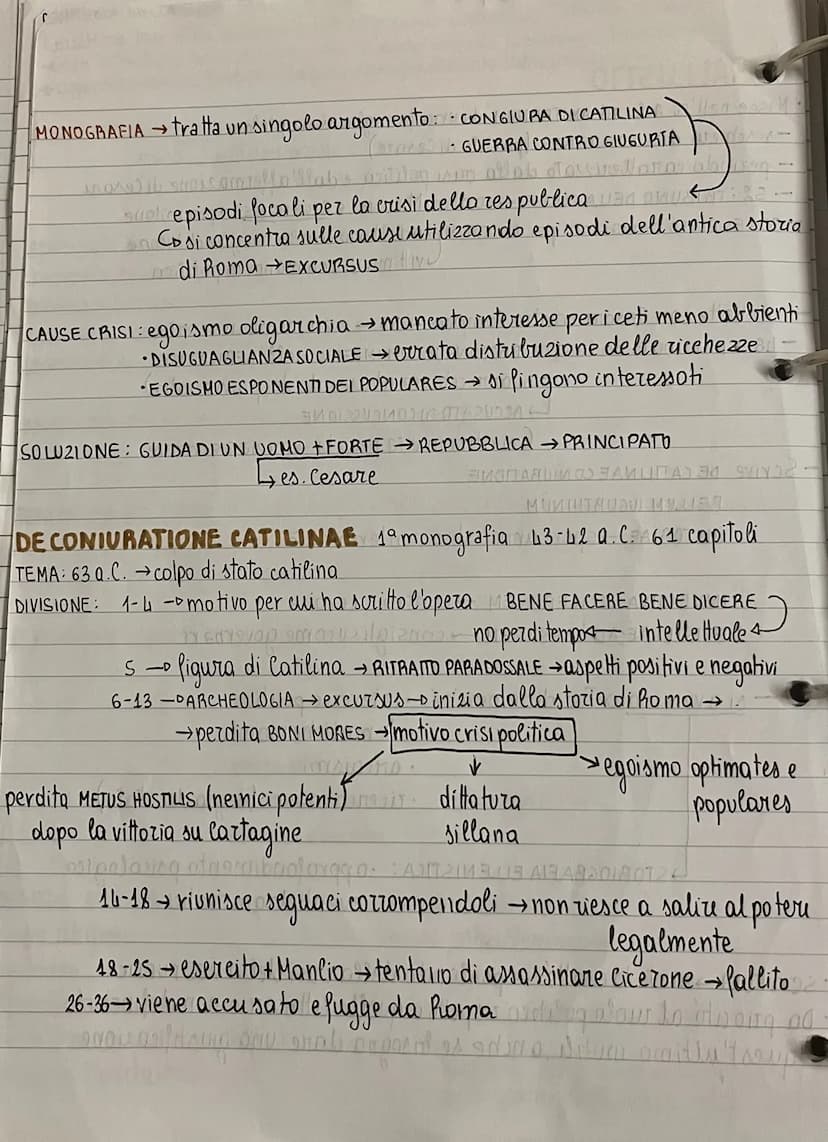 MONOGRAFIA → tratta un singolo argomento: · CONGIURA DI CATILINA
· GUERRA CONTRO GIUGURTA
episodi focali per la crisi della res publica
↳ si concentra sulle cause utilizzando episodi dell'antica storia
di Roma → EXCURSUS
CAUSE CRISI: egoismo oligarchia → mancato interesse per i ceti meno abbienti
· DISUGUAGLIANZA SOCIALE → errata distribuzione delle ricchezze
· EGOISMO ESPONENTI DEI POPULARES → si fingono interessati
SOLUZIONE: GUIDA DI UN UOMO + FORTE → REPUBBLICA → PRINCIPATO
↳ es. Cesare
DE CONIURATIONE CATILINAE 1ª monografia 43-42 a.C. 61 capitoli
TEMA: 63 a.C. → colpo di stato catilina
DIVISIONE: 1-4 → motivo per cui ha scritto l'opera BENE FACERE BENE DICERE
no perditempo ← intellettuale
5 → figura di Catilina → RITRATTO PARADOSSALE → aspetti positivi e negativi
6-13 → ARCHEOLOGIA → excursus → inizia dalla storia di Roma →
→ perdita BONI MORES → motivo crisi politica
perdita METUS HOSTILIS (nemici potenti) dittatura egoismo optimates e
dopo la vittoria su Cartagine sillana populares
14-18 → riunisce seguaci corrompendoli → non riesce a salire al potere
legalmente
18-25 → esercito + Manlio → tentativo di assassinare Cicerone → fallito
26-36 → viene accusato e fugge da Roma